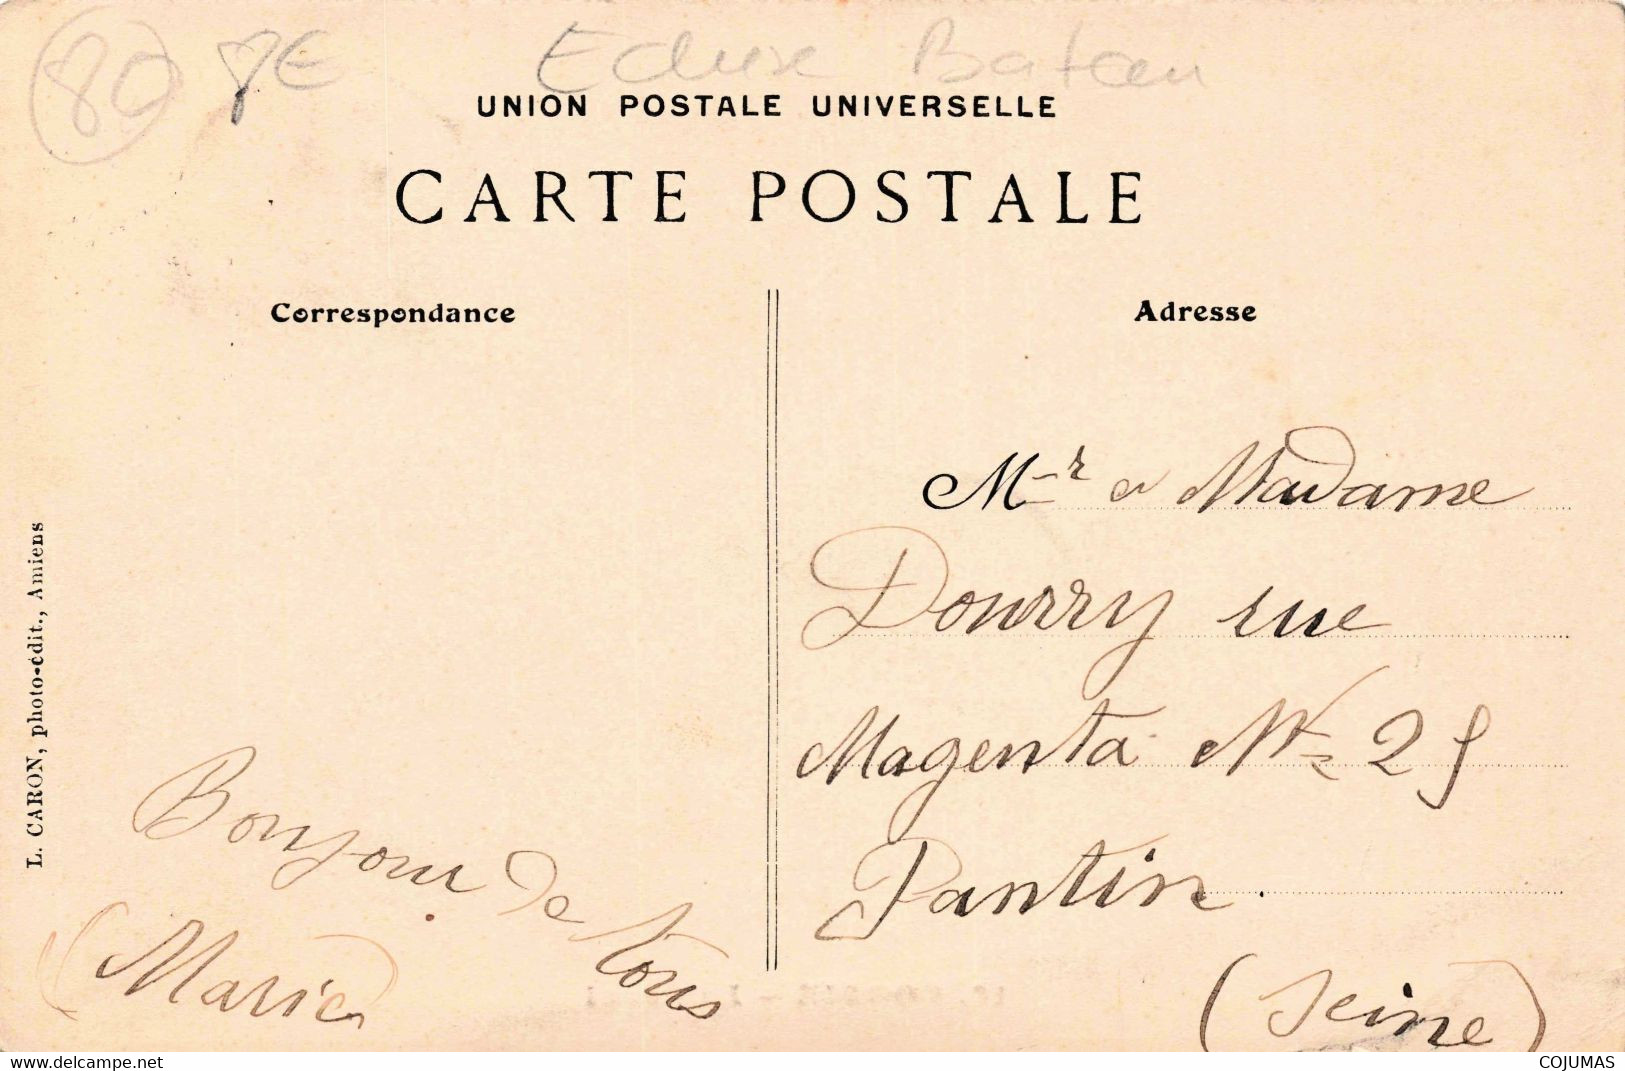 80 8€ Ecluse Bateau
UNION POSTALE UNIVERSELLE
CARTE POSTALE
Correspondance
Adresse
Mr e Madame
Dourry rue
Magenta No 25
Pantin.
(Seine)
Bonjour de tous
(Marie)
L. CARON, photo-édit., Amiens
www.delcampe.net
COJUMAS